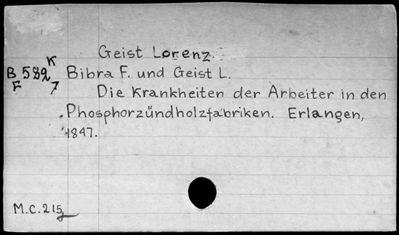 Geist Lorenz.
K
B 582 Bibra F. und Geist L.
F 7 Die Krankheiten der Arbeiter in den
Phosphorzündholzfabriken. Erlangen,
1847.
M.C. 215